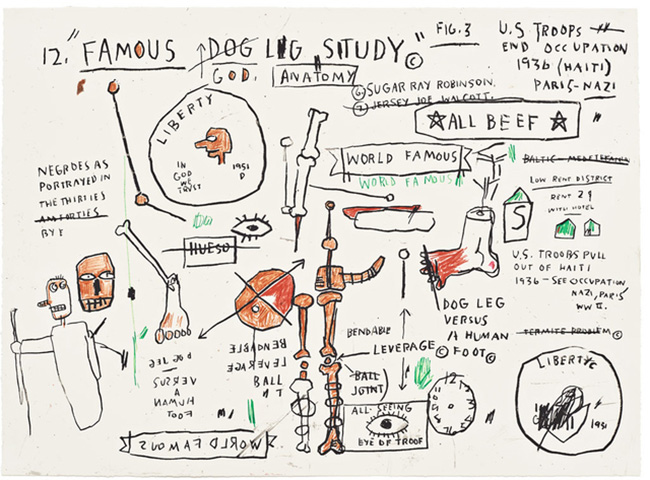 12. "FAMOUS DOG LEG STUDY" ©
GOD. ANATOMY
FIG.3
U.S TROOPS
END OCCUPATION
1936 (HAITI)
PARIS-NAZI
⑥ SUGAR RAY ROBINSON.
⑦ JERSEY JOE WALCOTT.
☆ ALL BEEF ☆
LIBERTY
IN
GOD
WE
TRUST
1951
D
WORLD FAMOUS
WORLD FAMOUS
LOW RENT DISTRICT
RENT 29
WITH HOTEL
S
NEGROES AS
PORTRAYED IN
THE THIRTIES
BY
HUESO
U.S. TROOPS PULL
OUT OF HAITI
1936 – SEE OCCUPATION
NAZI, PARIS
WW II.
TERMITE PROBLEM ©
DOG LEG
VERSUS
A HUMAN
© FOOT ©
BENDABLE
LEVERAGE
BALL
JOINT
BENDABLE
LEVERAGE
BALL
DOG LEG
VERSUS
A
HUMAN
FOOT
ALL-SEEING
EYE OF TROOF
12
LIBERTY
1951
WORLD FAMOUS